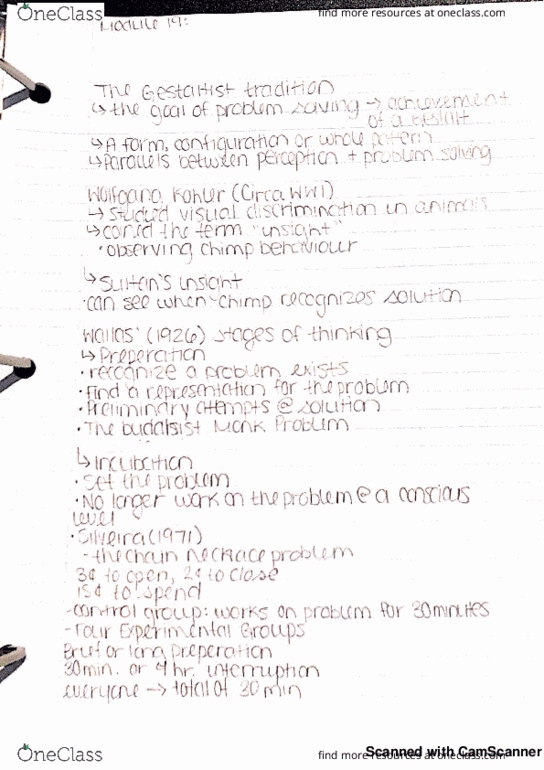 OneClass find more resources at oneclass.com
Module 19:
The Gestaltist tradition
↳ the goal of problem solving → achievement
of a gestalt
↳ A form, configuration or whole pattern
↳ parallels between perception + problem solving
Wolfgang Kohler (Circa WWI)
↳ studied visual discrimination in animals
↳ coined the term "insight"
• observing chimp behaviour
↳ Sultan's insight
• can see when chimp recognizes solution
Wallas' (1926) stages of thinking
↳ Preperation
• recognize a problem exists
• Find a representation for the problem
• Preliminary attempts @ solution
• The Monk Problem
↳ Incubation
• Set the problem
• No longer work on the problem @ a conscious
level
• Silveira (1971)
- the chain necklace problem
3¢ to open, 2¢ to close
15¢ to spend
- control group: works on problem for 30 minutes
- Four Experimental Groups
Brief or long preperation
30 min. or 4 hr. interruption
everyone → total of 30 min
OneClass find more resources at oneclass.com
Scanned with CamScanner